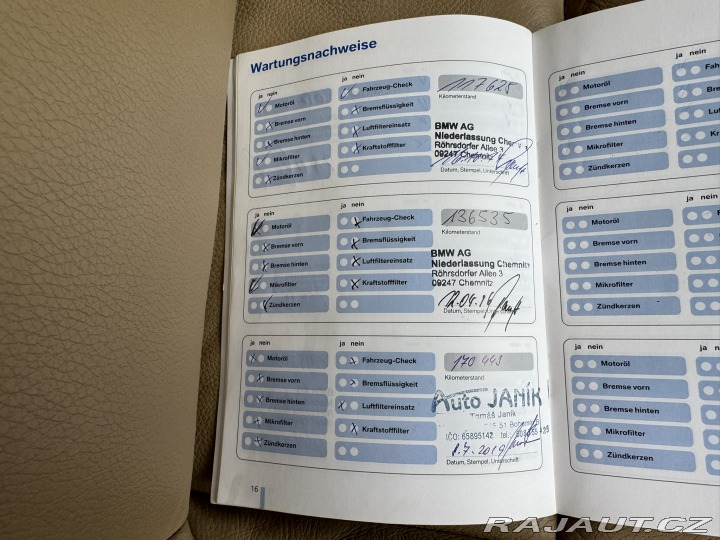 Wartungsnachweise
ja nein
ja nein
Motoröl
Fahrzeug-Check
117625
Bremse vorn
Bremsflüssigkeit
Kilometerstand
Bremse hinten
Luftfiltereinsatz
BMW AG
Niederlassung
Mikrofilter
Kraftstofffilter
Röhrsdorfer Allee 3
09247 Chemnitz
Zündkerzen
Datum, Stempel, Unterschrift
ja nein
ja nein
Motoröl
Fahrzeug-Check
136535
Bremse vorn
Bremsflüssigkeit
Kilometerstand
Bremse hinten
Luftfiltereinsatz
BMW AG
Niederlassung Chemnitz
Mikrofilter
Kraftstofffilter
Röhrsdorfer Allee 3
09247 Chemnitz
Zündkerzen
Datum, Stempel,
ja nein
ja nein
Motoröl
Fahrzeug-Check
170443
Bremse vorn
Bremsflüssigkeit
Kilometerstand
Bremse hinten
Luftfiltereinsatz
Auto JANÍK
Tomáš Janík
Mikrofilter
Kraftstofffilter
IČO: 65895142 tel.
Zündkerzen
1.7.2019
Datum, Stempel, Unterschrift
16
ja nein
ja nein
Motoröl
Bremse vorn
Bremse hinten
Mikrofilter
Zündkerzen
ja nein
ja nein
Motoröl
Bremse vorn
Bremse hinten
Mikrofilter
Zündkerzen
ja nein
ja nein
Motoröl
Bremse vorn
Bremse hinten
Mikrofilter
Zündkerzen
RAJAUT.CZ